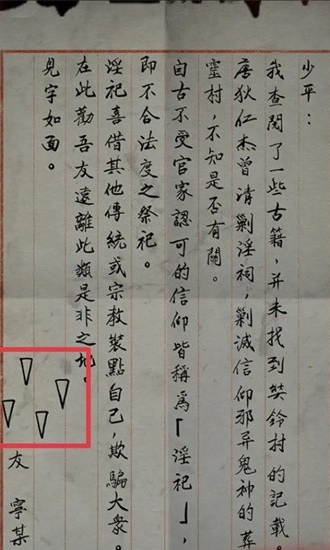 少平：
我查閱了一些古籍，并未找到奘鈴村的記載。
唐狄仁杰曾清剿淫祠，剿滅信仰邪异鬼神的葬
靈村，不知是否有關。
自古不受官家認可的信仰皆稱爲「淫祀」，
即不合法度之祭祀。
淫祀喜借其他傳統或宗教裝點自己，欺騙大衆。
在此勸吾友遠離此類是非之地。
見字如面。
友 寧某